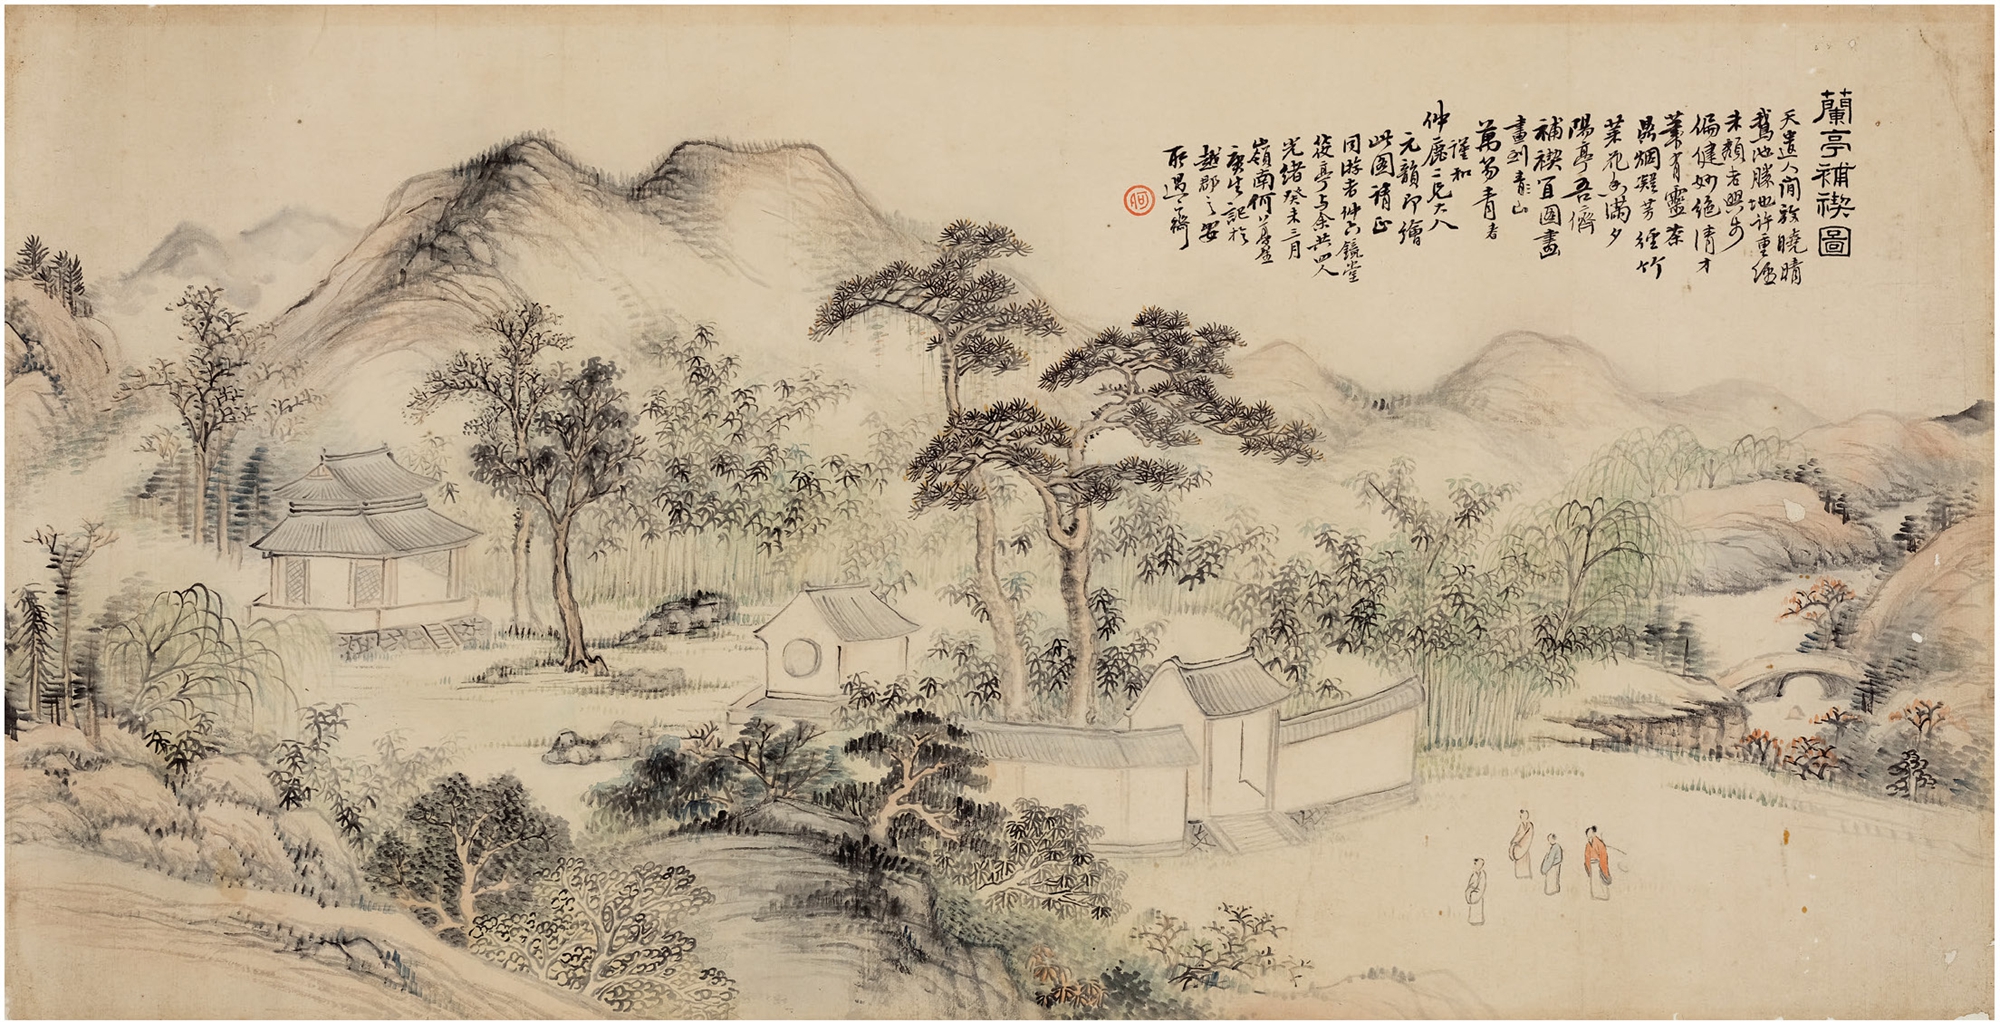 蘭亭補禊圖
天遣人間放曉晴
鵞池勝地許重經
朱顏老興步
偏健妙絕清才
筆有靈茶
鼎烟凝芳徑竹
菜花香滿夕
陽亭吾儕
補禊宜圖畫
畫到青山
萬笏青
謹和
仲麗二兄大人
元韻即繪
此圖請正
同游者仲鏡堂
後亭与余共四人
光緒癸未三月
嶺南何
生記於
越郡之安
所遇齋
何